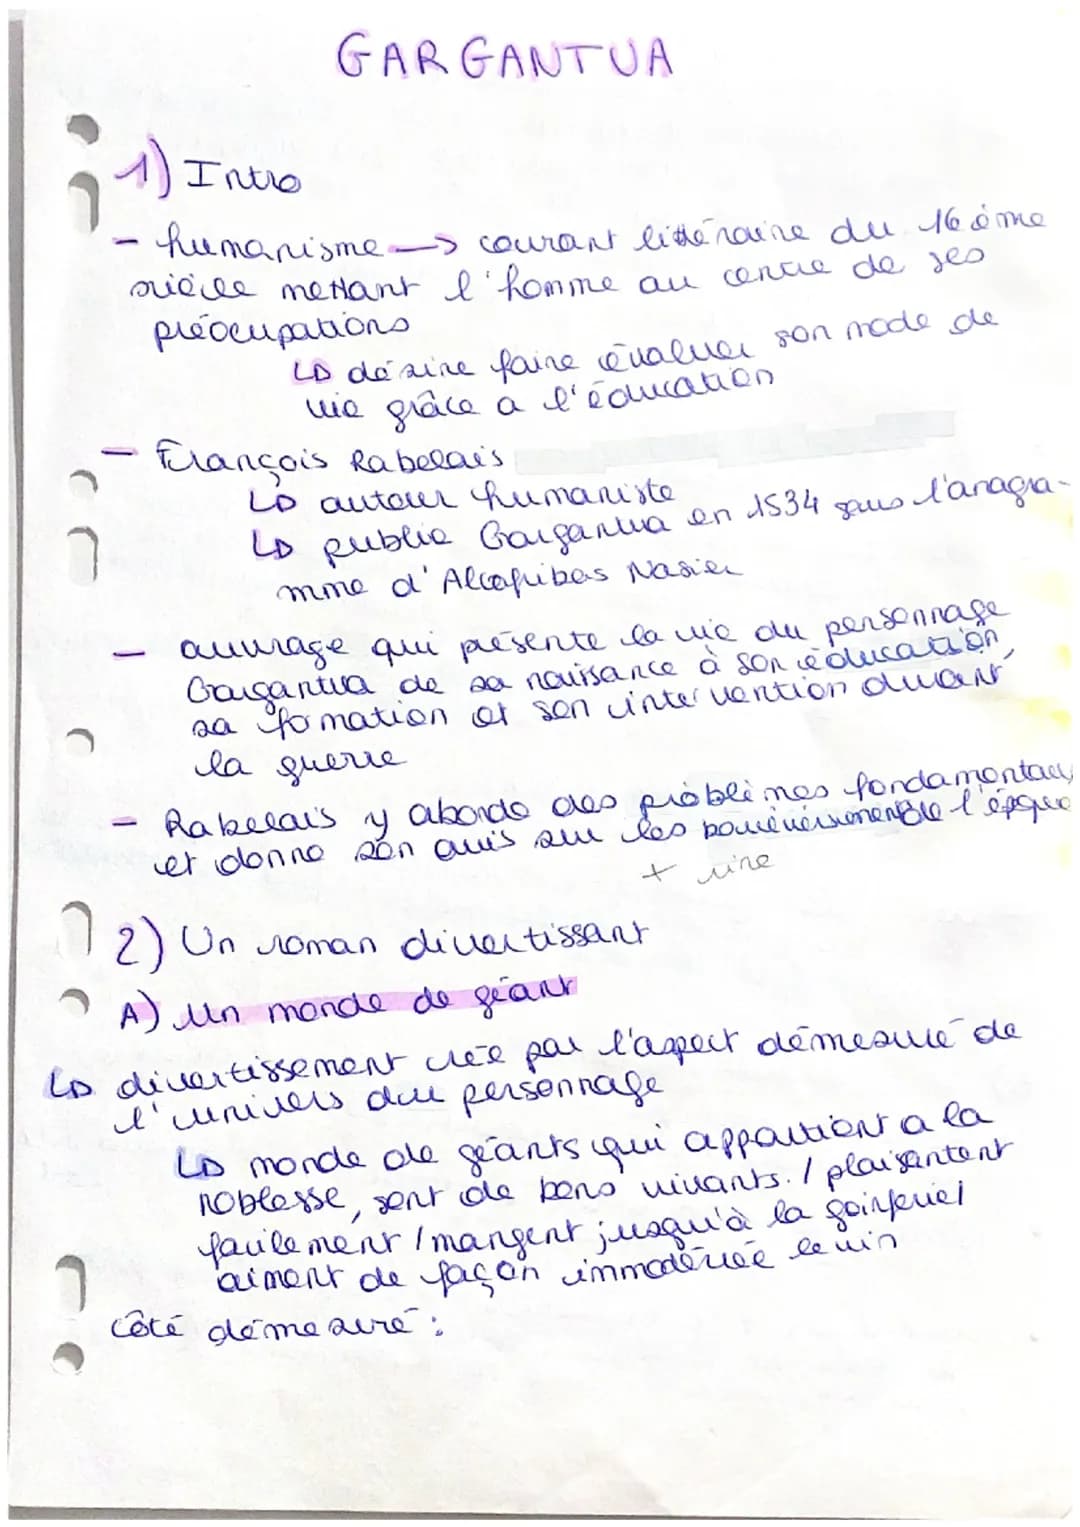 GARGANTUA
1) Intro
- humanisme → courant littéraire du 16 ème
siècle mettant l'homme au centre de ses
préocupations
↳ désire faire évoluer son mode de
vie grâce a l'éducation
- François Rabelais
↳ auteur humaniste
↳ publie Gargantua en 1534 sous l'anagra-
mme d'Alcofribas Nasier
- ouvrage qui présente la vie du personnage
Gargantua de sa naissance à son éducation,
sa formation et son intervention durant
la guerre
- Rabelais y aborde des problèmes fondamentaux
et donne son avis sur les bouleversements de l'époque
+ rire
2) Un roman divertissant
A) Un monde de géant
↳ divertissement crée par l'aspect démesuré de
l'univers du personnage
↳ monde de géants qui appartient a la
noblesse, sont de bons vivants. / plaisantent
facilement / mangent jusqu'à la goinferie /
aiment de façon immodérée le vin
côté démesuré :